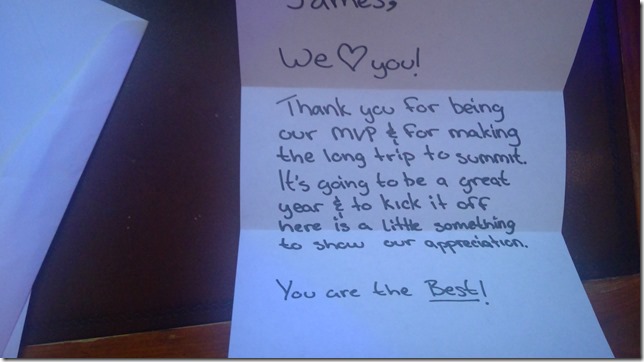 James,
We ♡ you!
Thank you for being
our MVP & for making
the long trip to summit.
It's going to be a great
year & to kick it off
here is a little something
to show our appreciation.
You are the Best!